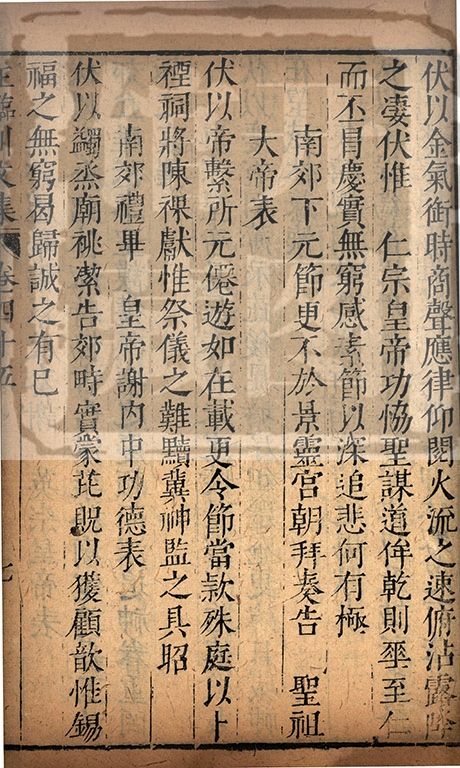 伏以金氣御時商聲應律仰閔火流之速俯沾露降
之凄伏惟　仁宗皇帝功恊聖謀道侔乾則率至仁
而丕冒慶實無窮感素節以深追悲何有極
南郊下元節更不於景靈宮朝拜奏告　聖祖
大帝表
伏以帝繫所元僊遊如在載更令節當款殊庭以卜
禋祠將陳祼獻惟祭儀之難黷冀神監之具昭
南郊禮畢　皇帝謝內中功德表
伏以蠲烝廟祧潔告郊時實蒙芘貺以獲顧歆惟錫
福之無窮曷歸誠之有已
王臨川文集　卷四十五　七